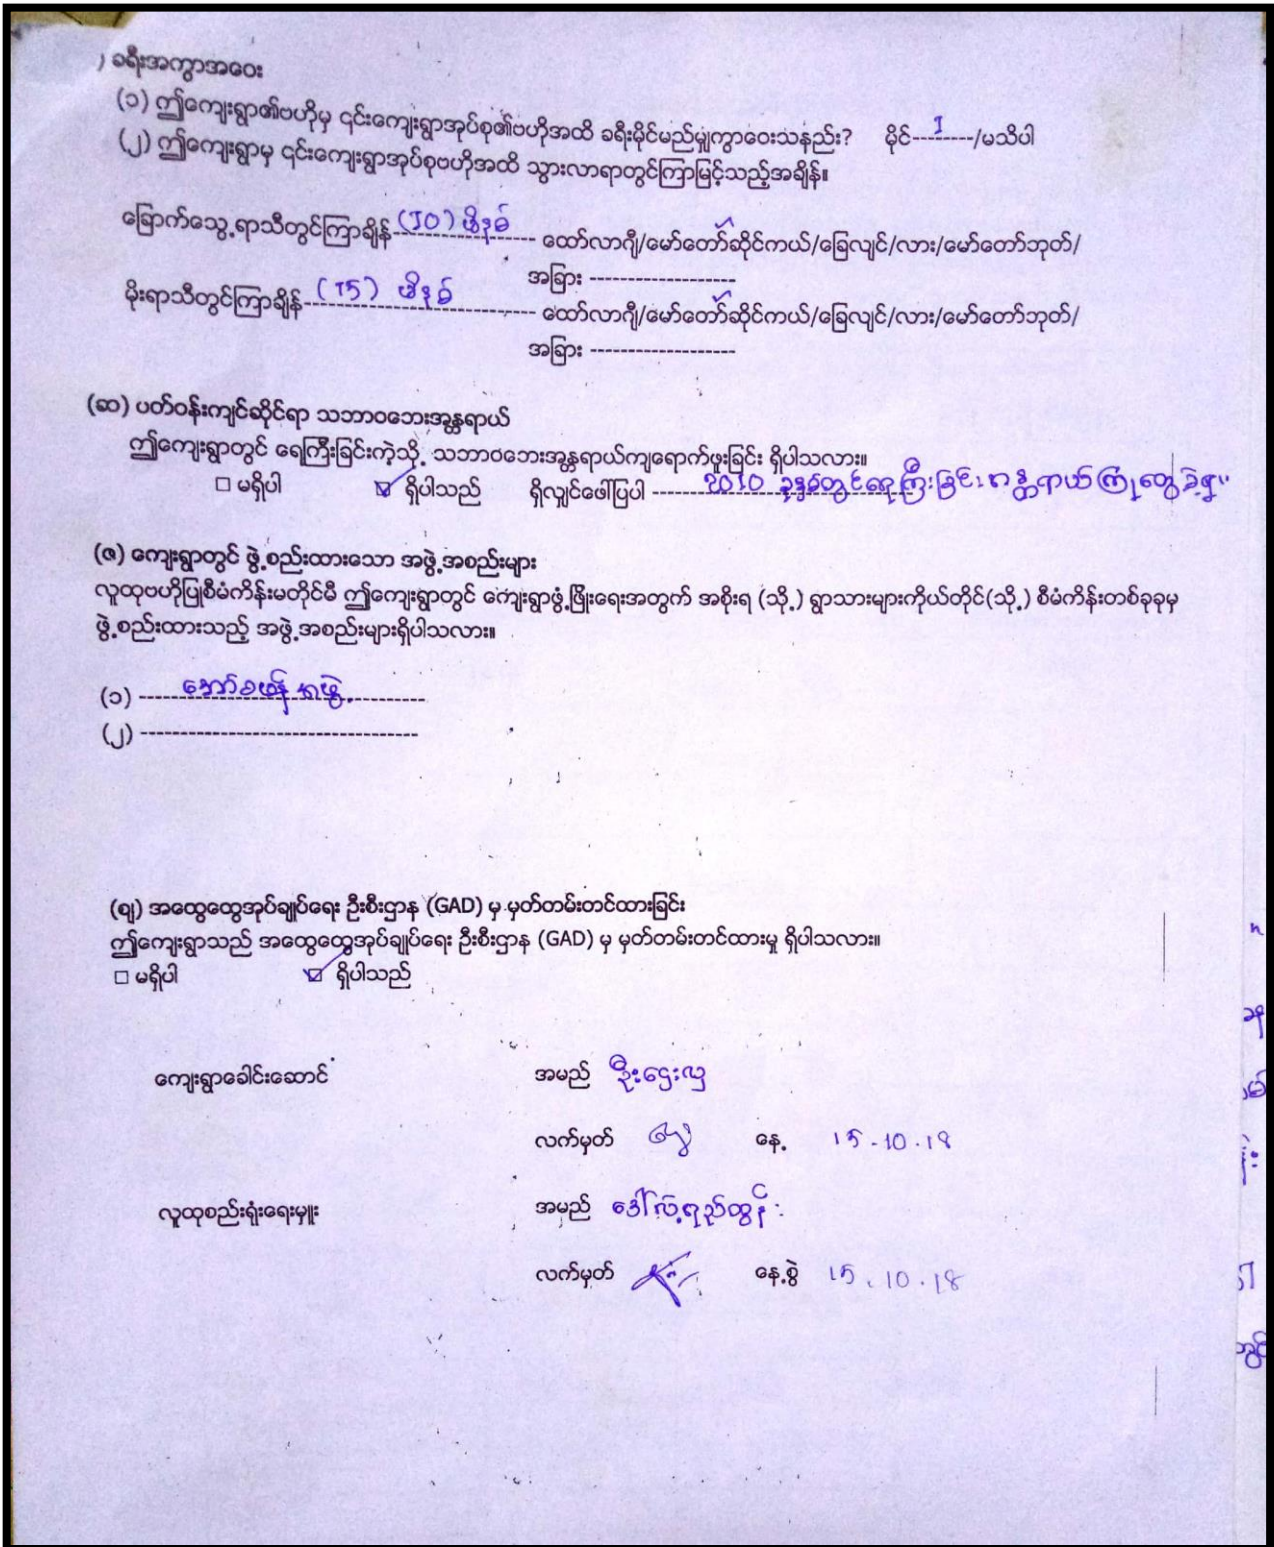 ) ခရီးအကွာအဝေး
(၁) ဤကျေးရွာ၏ဗဟိုမှ ၎င်းကျေးရွာအုပ်စု၏ဗဟိုအထိ ခရီးမိုင်မည်မျှကွာဝေးသနည်း? မိုင်---1---/မသိပါ
(၂) ဤကျေးရွာမှ ၎င်းကျေးရွာအုပ်စုဗဟိုအထိ သွားလာရာတွင်ကြာမြင့်သည့်အချိန်။
ခြောက်သွေ့ရာသီတွင်ကြာချိန် (10) မိနစ် ထော်လာဂျီ/မော်တော်ဆိုင်ကယ်/ခြေလျင်/လား/မော်တော်ဘုတ်/
အခြား -------------------
မိုးရာသီတွင်ကြာချိန် (15) မိနစ် ထော်လာဂျီ/မော်တော်ဆိုင်ကယ်/ခြေလျင်/လား/မော်တော်ဘုတ်/
အခြား -------------------
(ဆ) ပတ်ဝန်းကျင်ဆိုင်ရာ သဘာဝဘေးအန္တရာယ်
ဤကျေးရွာတွင် ရေကြီးခြင်းကဲ့သို့ သဘာဝဘေးအန္တရာယ်ကျရောက်ဖူးခြင်း ရှိပါသလား။
□ မရှိပါ ☑ ရှိပါသည် ရှိလျှင်ဖေါ်ပြပါ 2010 ခုနှစ်တွင်ရေကြီးခြင်းအန္တရာယ်ကြုံတွေ့ခဲ့ရ။
(ဇ) ကျေးရွာတွင် ဖွဲ့စည်းထားသော အဖွဲ့အစည်းများ
လူထုဗဟိုပြုစီမံကိန်းမတိုင်မီ ဤကျေးရွာတွင် ကျေးရွာဖွံ့ဖြိုးရေးအတွက် အစိုးရ (သို့) ရွာသားများကိုယ်တိုင်(သို့) စီမံကိန်းတစ်ခုခုမှ
ဖွဲ့စည်းထားသည့် အဖွဲ့အစည်းများရှိပါသလား။
(၁) အဖွဲ့
(၂) ------------------------------------
(ဈ) အထွေထွေအုပ်ချုပ်ရေး ဦးစီးဌာန (GAD) မှ မှတ်တမ်းတင်ထားခြင်း
ဤကျေးရွာသည် အထွေထွေအုပ်ချုပ်ရေး ဦးစီးဌာန (GAD) မှ မှတ်တမ်းတင်ထားမှု ရှိပါသလား။
□ မရှိပါ ☑ ရှိပါသည်
ကျေးရွာခေါင်းဆောင် အမည် ဦးဌေးလှ
လက်မှတ် နေ့ 15-10-18
လူထုစည်းရုံးရေးမှူး အမည် ဒေါ်
လက်မှတ် နေ့စွဲ 15.10.18